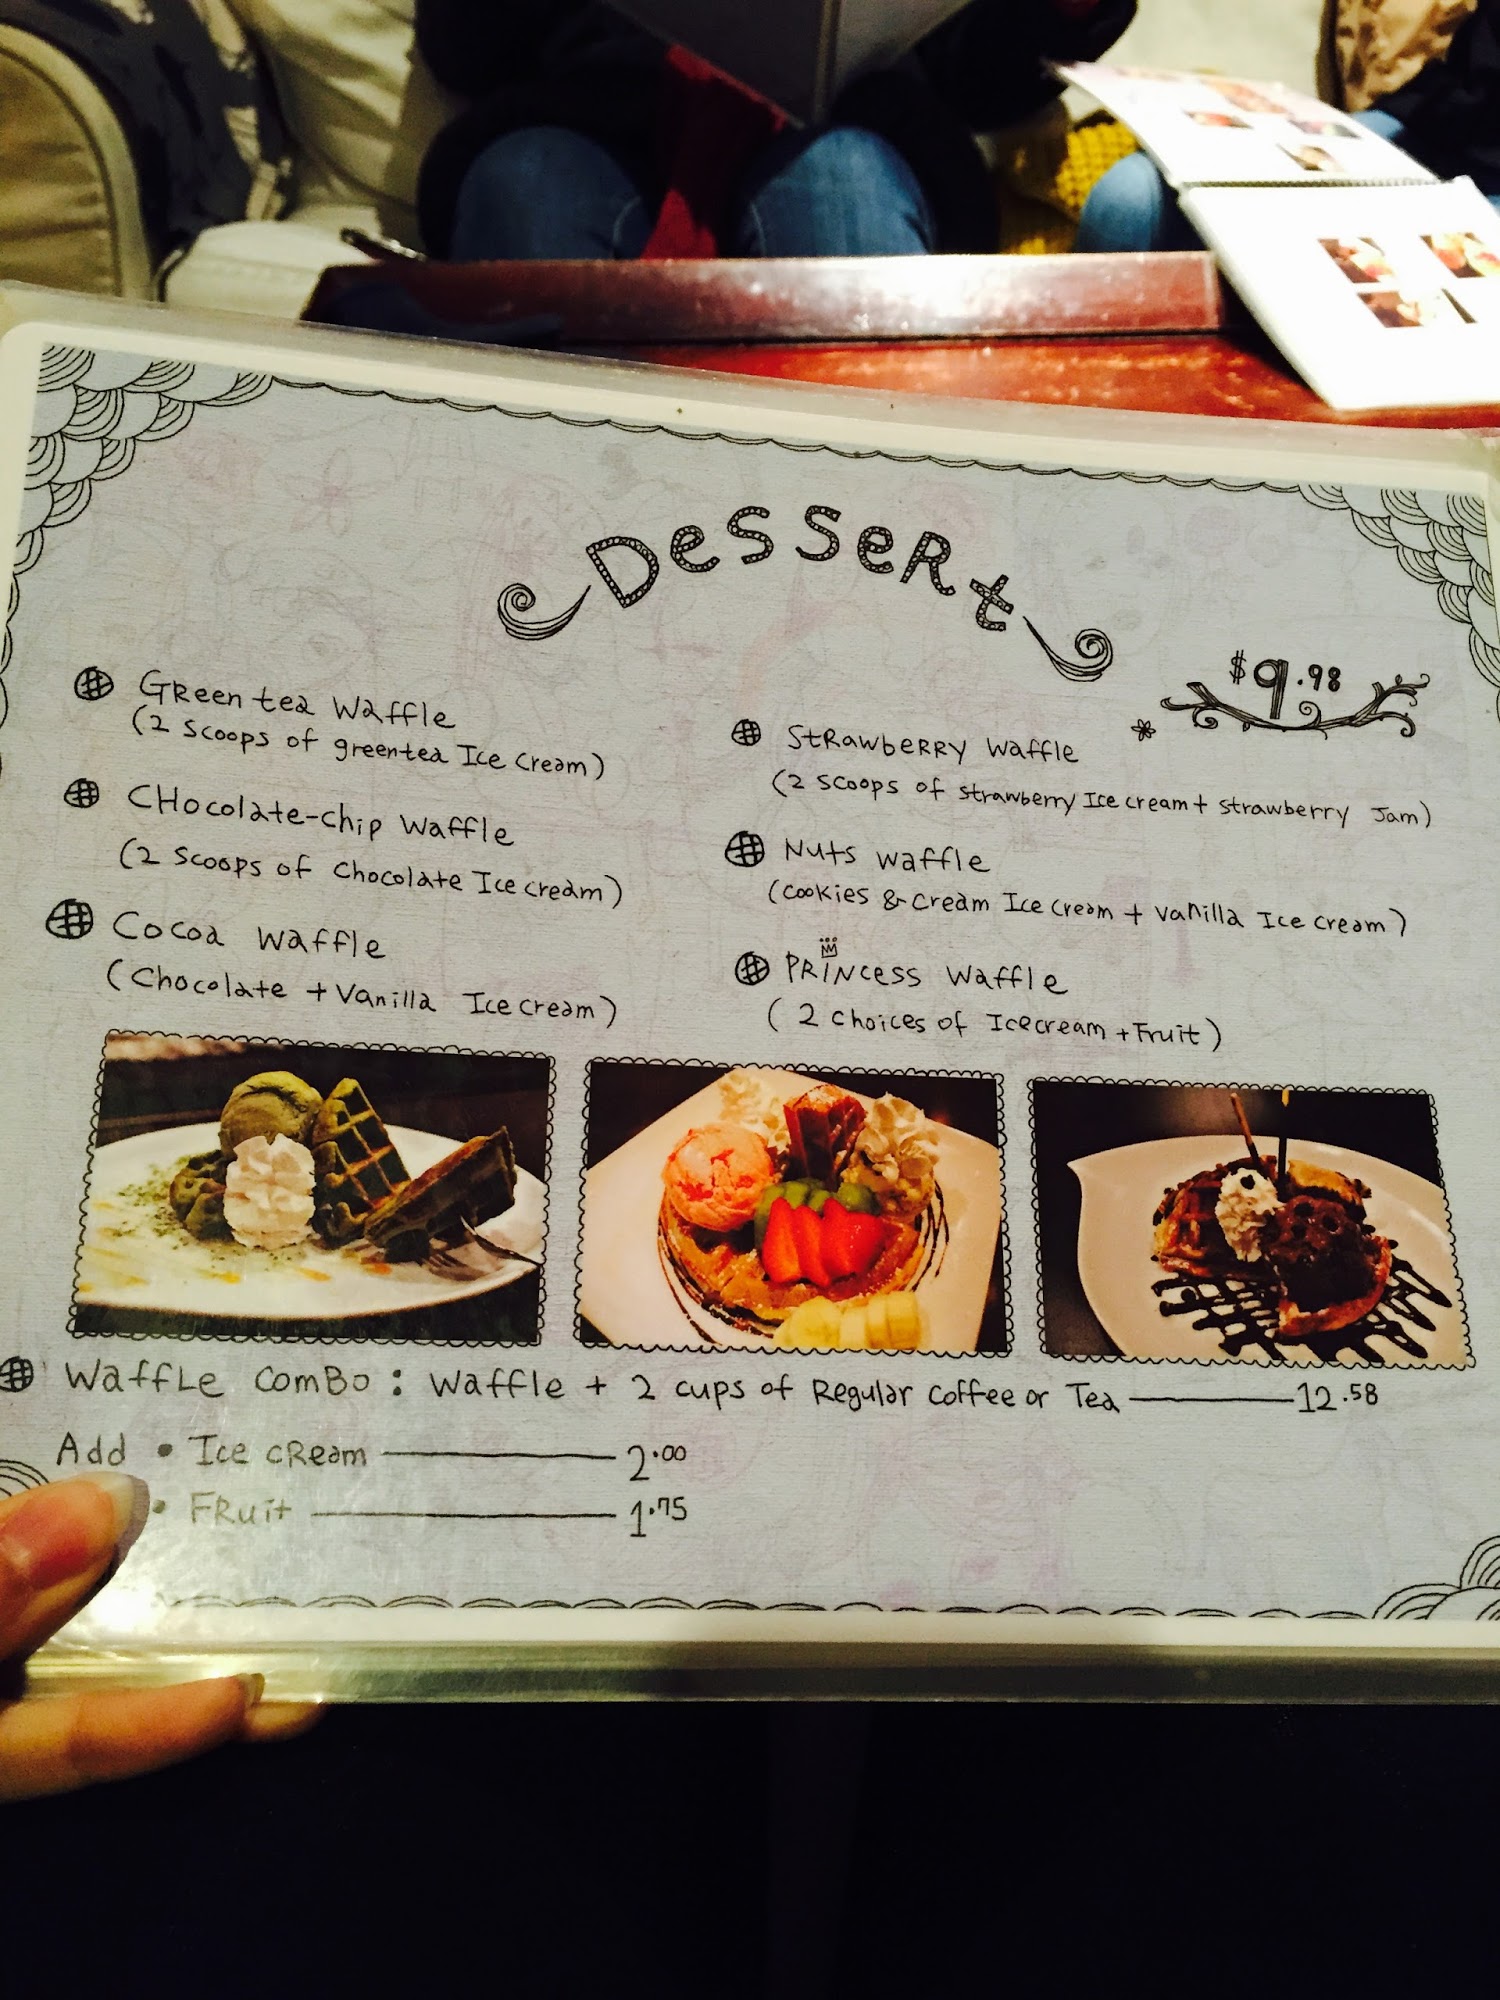 Dessert
$9.98
Green tea Waffle
(2 scoops of greentea Ice cream)
Chocolate-chip Waffle
(2 scoops of chocolate Ice cream)
Cocoa Waffle
(Chocolate + Vanilla Ice cream)
Strawberry Waffle
(2 scoops of strawberry Ice cream + strawberry Jam)
Nuts Waffle
(cookies & cream Ice cream + vanilla Ice cream)
Princess Waffle
(2 choices of Icecream + Fruit)
Waffle Combo : Waffle + 2 cups of Regular Coffee or Tea 12.58
Add • Ice cream 2.00
• Fruit 1.75